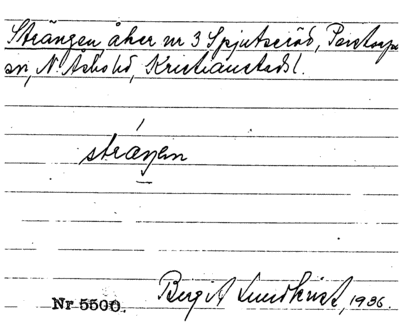 Strängen, åker nr 3 Spjutseröd, Perstorps
sn, N. Åsbo hd, Kristianstads l.
stræŋen
Nr 5500.
Bergit Lundkvist, 1936.